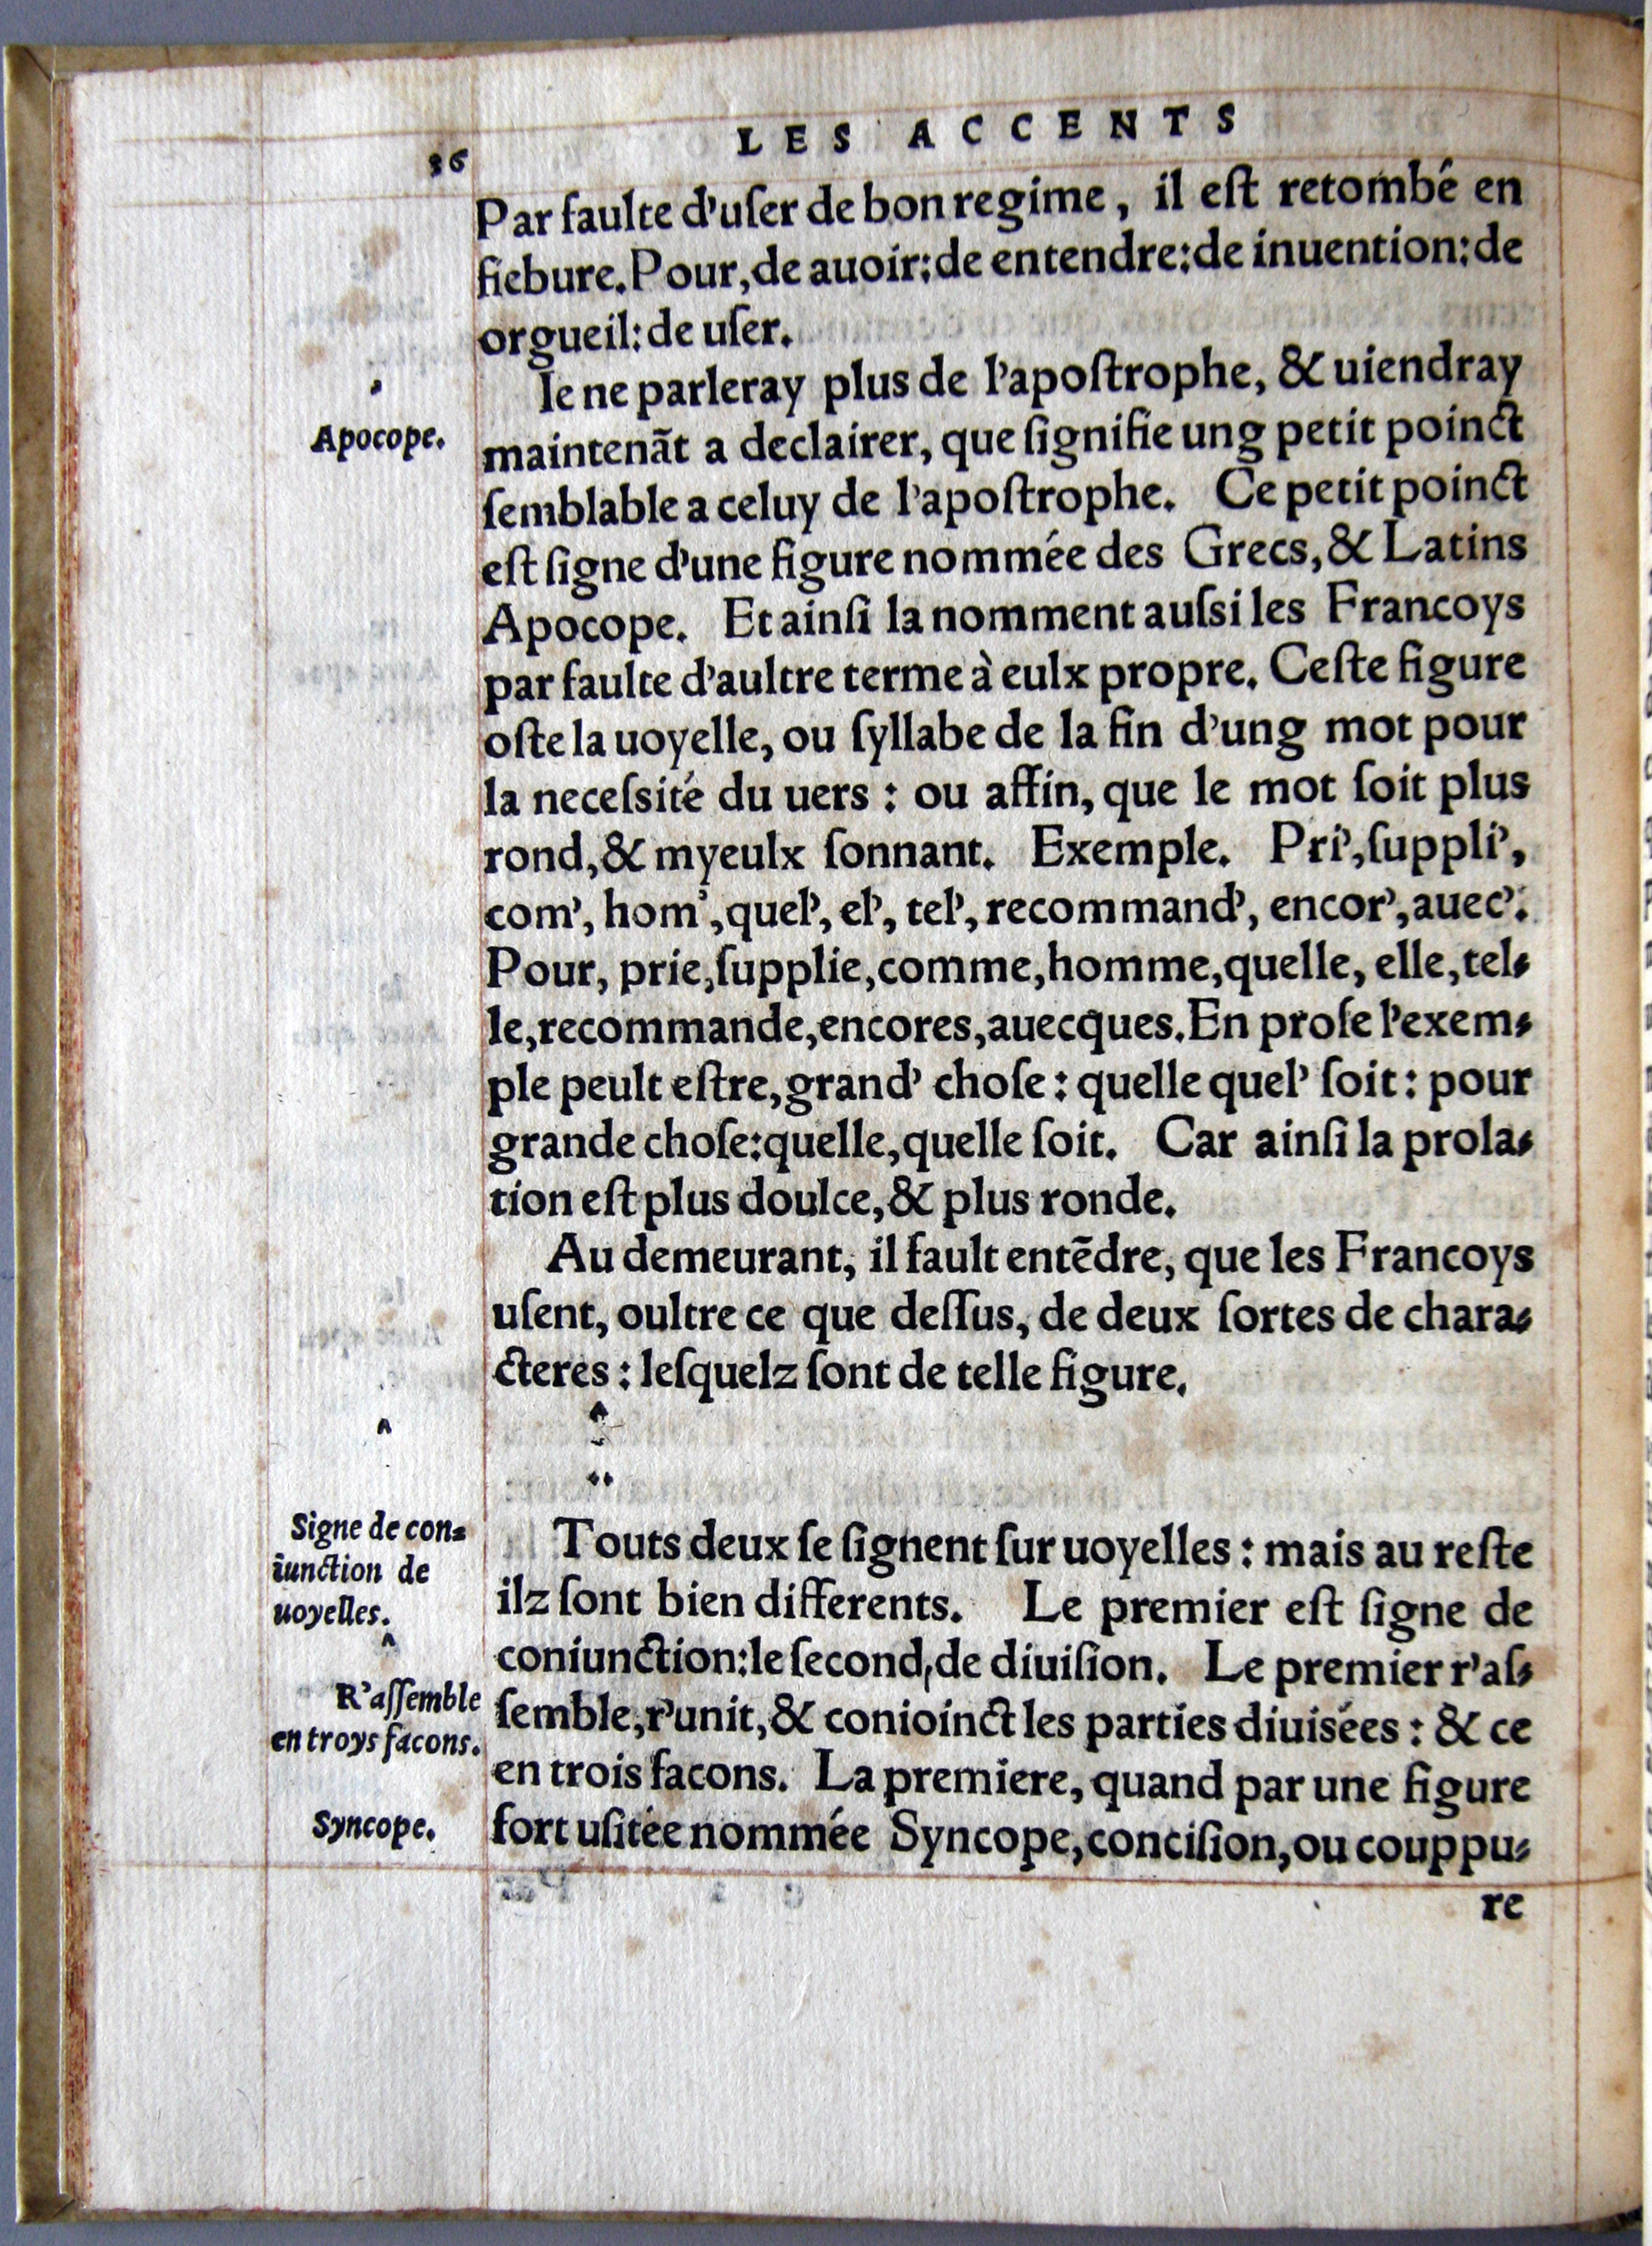 36
LES ACCENTS
Par faulte d'uſer de bon regime, il eſt retombé en
fiebure. Pour, de auoir: de entendre: de inuention: de
orgueil: de uſer.
'
Apocope.
Ie ne parleray plus de l'apoſtrophe, & uiendray
maintenãt a declairer, que ſignifie ung petit poinct
ſemblable a celuy de l'apoſtrophe. Ce petit poinct
eſt ſigne d'une figure nommée des Grecs, & Latins
Apocope. Et ainſi la nomment auſsi les Francoys
par faulte d'aultre terme à eulx propre. Ceſte figure
oſte la uoyelle, ou ſyllabe de la fin d'ung mot pour
la neceſsité du uers : ou affin, que le mot ſoit plus
rond, & myeulx ſonnant. Exemple. Pri', ſuppli',
com', hom', quel', el', tel', recommand', encor', auec'.
Pour, prie, ſupplie, comme, homme, quelle, elle, tel-
le, recommande, encores, auecques. En proſe l'exem-
ple peult eſtre, grand' choſe : quelle quel' ſoit : pour
grande choſe: quelle, quelle ſoit. Car ainſi la prola-
tion eſt plus doulce, & plus ronde.
Au demeurant, il fault entẽdre, que les Francoys
uſent, oultre ce que deſſus, de deux ſortes de chara-
cteres : leſquelz ſont de telle figure.
^
¨
^
Signe de con-
iunction de
uoyelles.
Touts deux ſe ſignent ſur uoyelles : mais au reſte
ilz ſont bien differents. Le premier eſt ſigne de
coniunction: le ſecond, de diuiſion. Le premier r'aſ-
ſemble, r'unit, & conioinct les parties diuisées : & ce
en trois facons. La premiere, quand par une figure
fort uſitée nommée Syncope, conciſion, ou couppu-
^
R'aſſemble
en troys facons.
Syncope.
re